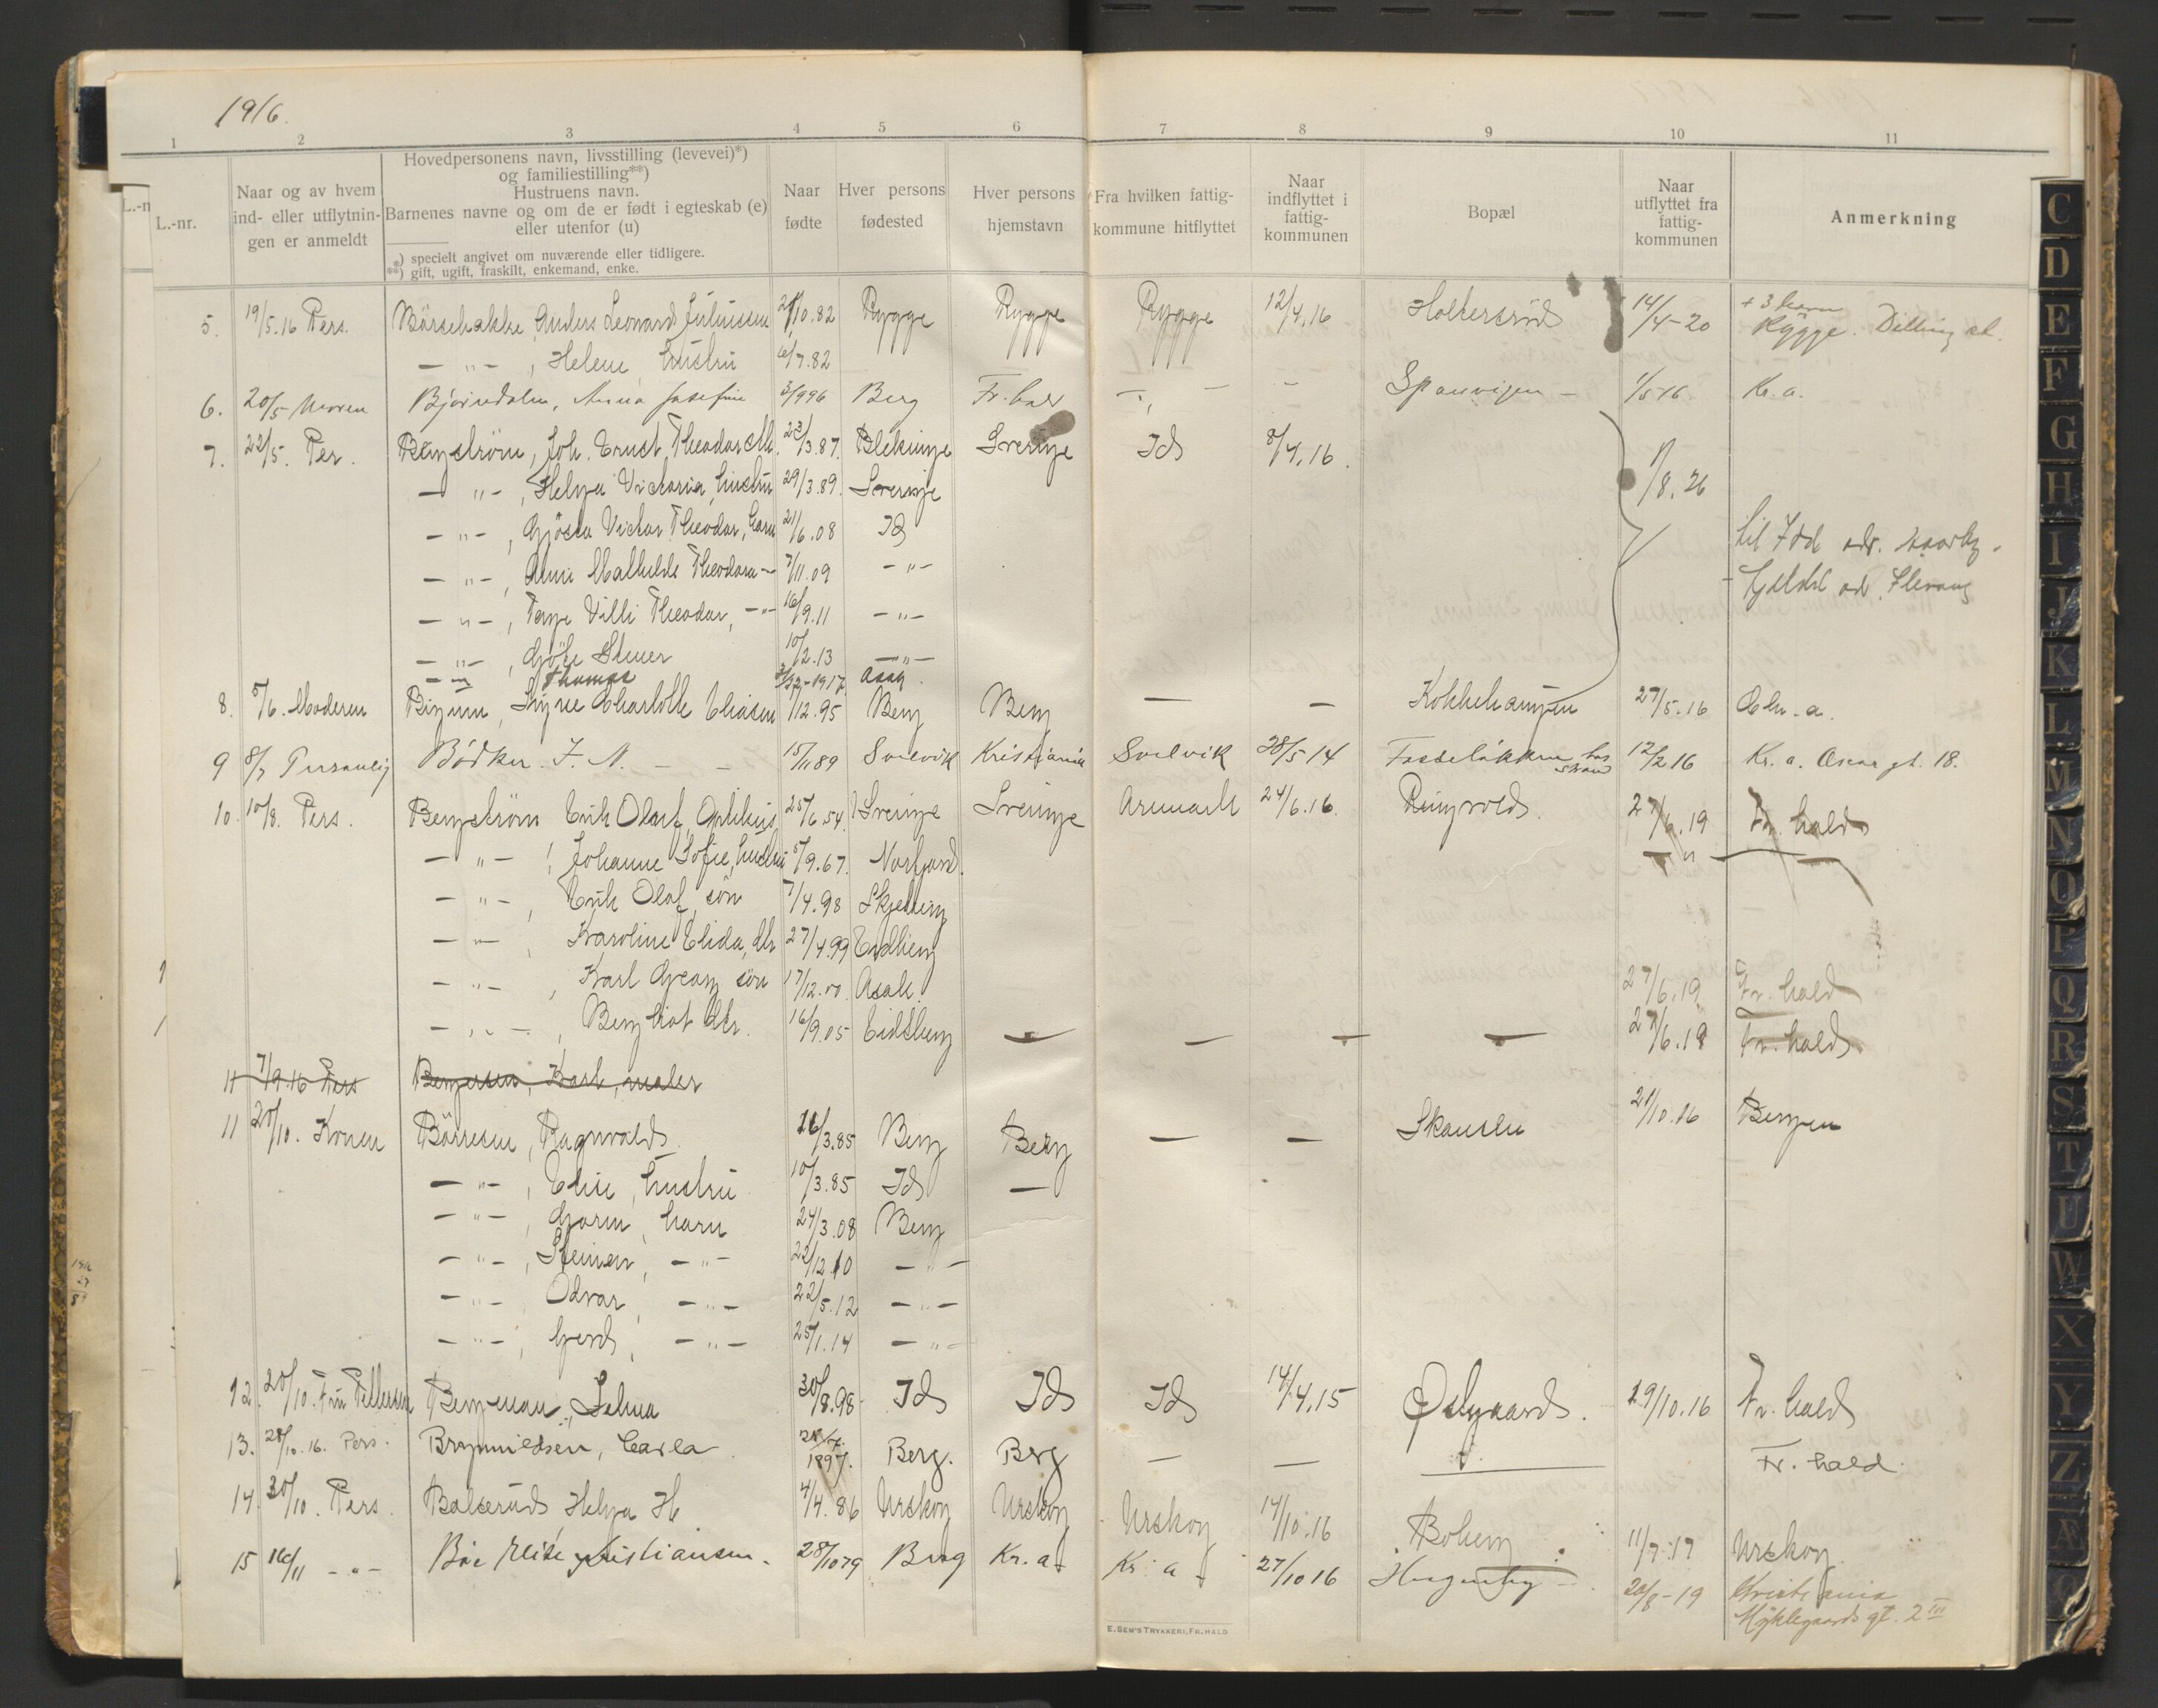 1916.
1 2 3 4 5 6 7 8 9 10 11
L.-nr.
Naar og av hvem ind- eller utflytnin- gen er anmeldt
Hovedpersonens navn, livsstilling (levevei)*)
og familiestilling**)
Hustruens navn.
Barnenes navne og om de er født i egteskab (e)
eller utenfor (u)
*) specielt angivet om nuværende eller tidligere.
**) gift, ugift, fraskilt, enkemand, enke.
Naar fødte
Hver persons fødested
Hver persons hjemstavn
Fra hvilken fattig- kommune hitflyttet
Naar indflyttet i fattig- kommunen
Bopæl
Naar utflyttet fra fattig- kommunen
Anmerkning
L.-n
5. 19/5.16 Pers. Börsebakke, Anders Leonard Juliussen 21/10.82 Rygge Rygge Rygge 12/4.16 Holtersröd 14/4-20 + 3 barn Rygge. Dilling st.
— " — , Helene, hustru 6/7.82
6. 20/5 Moren Bjørndalen, Anna Josefine 3/996 Berg Fr.hald — " — — Sponvigen — 1/5 16 Kr. a.
7. 22/5. Per. Bengström, Joh. Ernst Theodor 23/3.87. Blekinge Sverige Id 8/4.16. 1/8.26
— " — , Helga Victoria, hustru 29/3.89. Sverige
— " — , Gjösta Victor Theodor, barn 21/6.08 Id til Idd adr.
— " — , Anni Mathilde Theodora — 7/11.09 — " —
— " — , Tage Villi Theodor, — " — 16/9.11 — " —
— " — , Göte Stener 10/2.13 — " —
— " — Thomas 1917 Asak.
8. 5/6. Moderen Signe Charlotte Eliasen 1/12.95 Berg Berg — — Kokkehaugen 27/5.16 Chr. a.
9 8/7 Personlig Bödker J. N. — — 15/11 89 Svelvik Kristiania Svelvik 28/5 14 Fosselökken hos 12/2 16 Kr. a. Oscar gt. 18.
10. 10/8. Pers. Bengström Erik Olaf, 25/6.54. Sverige Sverige Aremark 24/6.16. Ringvold. 27/6.19 Fr. hald
— " — , Johanne Sofie, hustru 5/9.67. — " —
— " — , Erik Olaf sön 7/4.98 Skjeberg
— " — , Karoline Elida, dtr 27/4.99 Eidberg
— " — , Karl Georg sön 17/12.00. Asak. 27/6.19 Fr. hald
— " — , Bergliot dtr. 16/9.05 Eidsberg — — — — 27/6.19 Fr. hald
11 7/9.16 Pers Karl, maler
11 20/10. Konen Börresen, Ragnvald 26/3.85 Berg Berg — — Skansen 21/10.16 Bergen
— " — , Elise, hustru 10/3.85 Id —
— " — , Gorm, barn 24/3.08 Berg
— " — , Steinar, — " — 22/12.10 — " —
— " — , Odvar, — " — 22/5.12 — " —
— " — , Gerd, — " — 25/1.14 — " —
12. 20/10. Fru Pettersen Bergman, Selma 30/8.98 Id Id Id 14/4.15 Østgaard. 29/10.16 Fr. hald
13. 28/10.16. Pers. Brynnildsen, Carla 1897. Berg. Berg — — Fr. hald.
14. 30/10. Pers. Bakserud, Helga H 4/4.86 Urskog Urskog Urskog 14/10.16 Boberg 11/7.17 Urskog
15 16/11 — " — Böe Elise Kristiansen. 28/1079 Berg Kr. a. Kr. a 27/10 16 20/8-19 Kristiania
Myklegaards gt. 2 III
E. SEM'S TRYKKERI, FR.HALD
C
D
E
F
G
H
I
J
K
L
M
N
O
P
Q
R
S
T
U
W
X
Y
Z
Æ
Ø